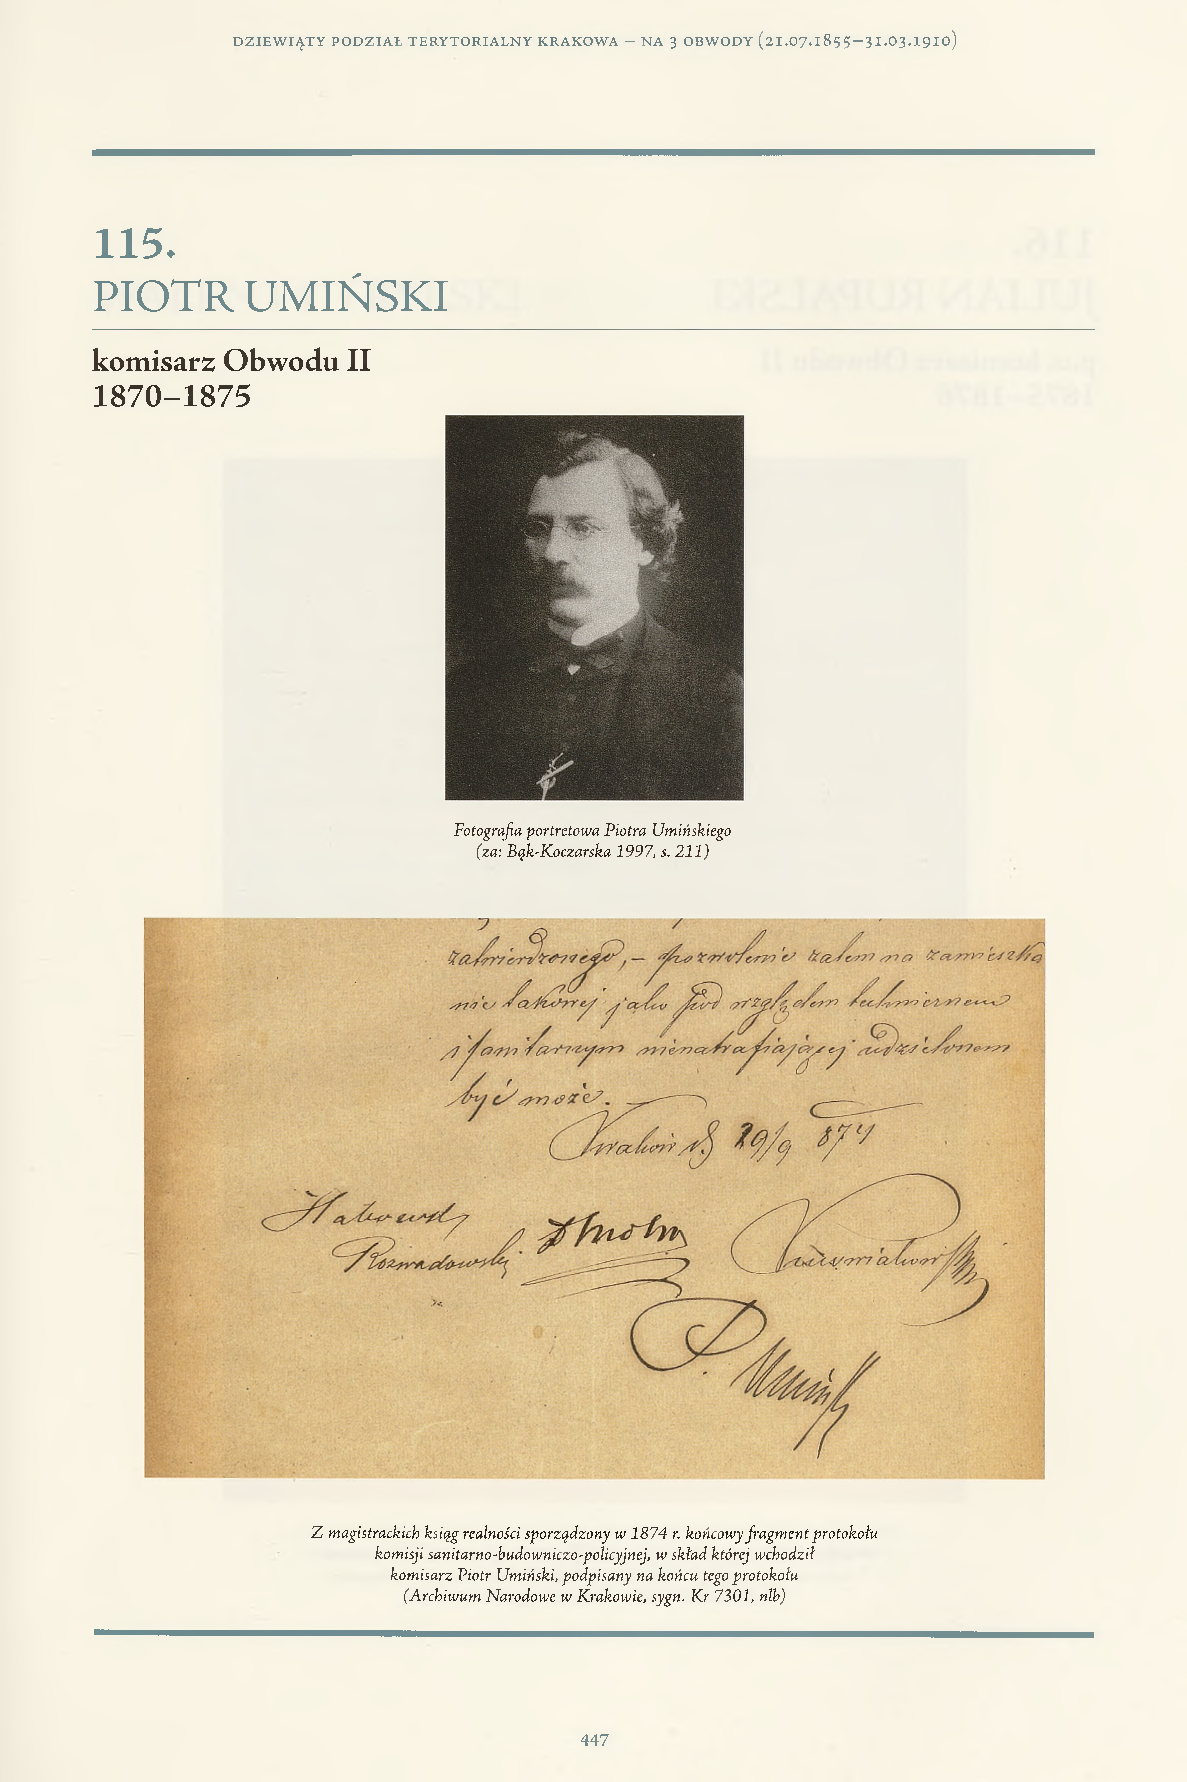 DZIEWIĄTY PODZIAŁ TERYTORIALNY KRAKOWA – NA 3 OBWODY (21.07.1855–31.03.1910)
115.
PIOTR UMIŃSKI
komisarz Obwodu II
1870–1875
Fotografia portretowa Piotra Umińskiego
(za: Bąk-Koczarska 1997, s. 211)
zatwierdzonego, – pozwolenie zatem na zamieszka
nie takowej jako pod względem technicznem
i sanitarnym nienatrafiającej udzielonem
być może. –
Kraków d. 29/9 874
Rozwadowski
P. Umiński
Z magistrackich ksiąg realności sporządzony w 1874 r. końcowy fragment protokołu
komisji sanitarno-budowniczo-policyjnej, w skład której wchodził
komisarz Piotr Umiński, podpisany na końcu tego protokołu
(Archiwum Narodowe w Krakowie, sygn. Kr 7301, nlb)
447